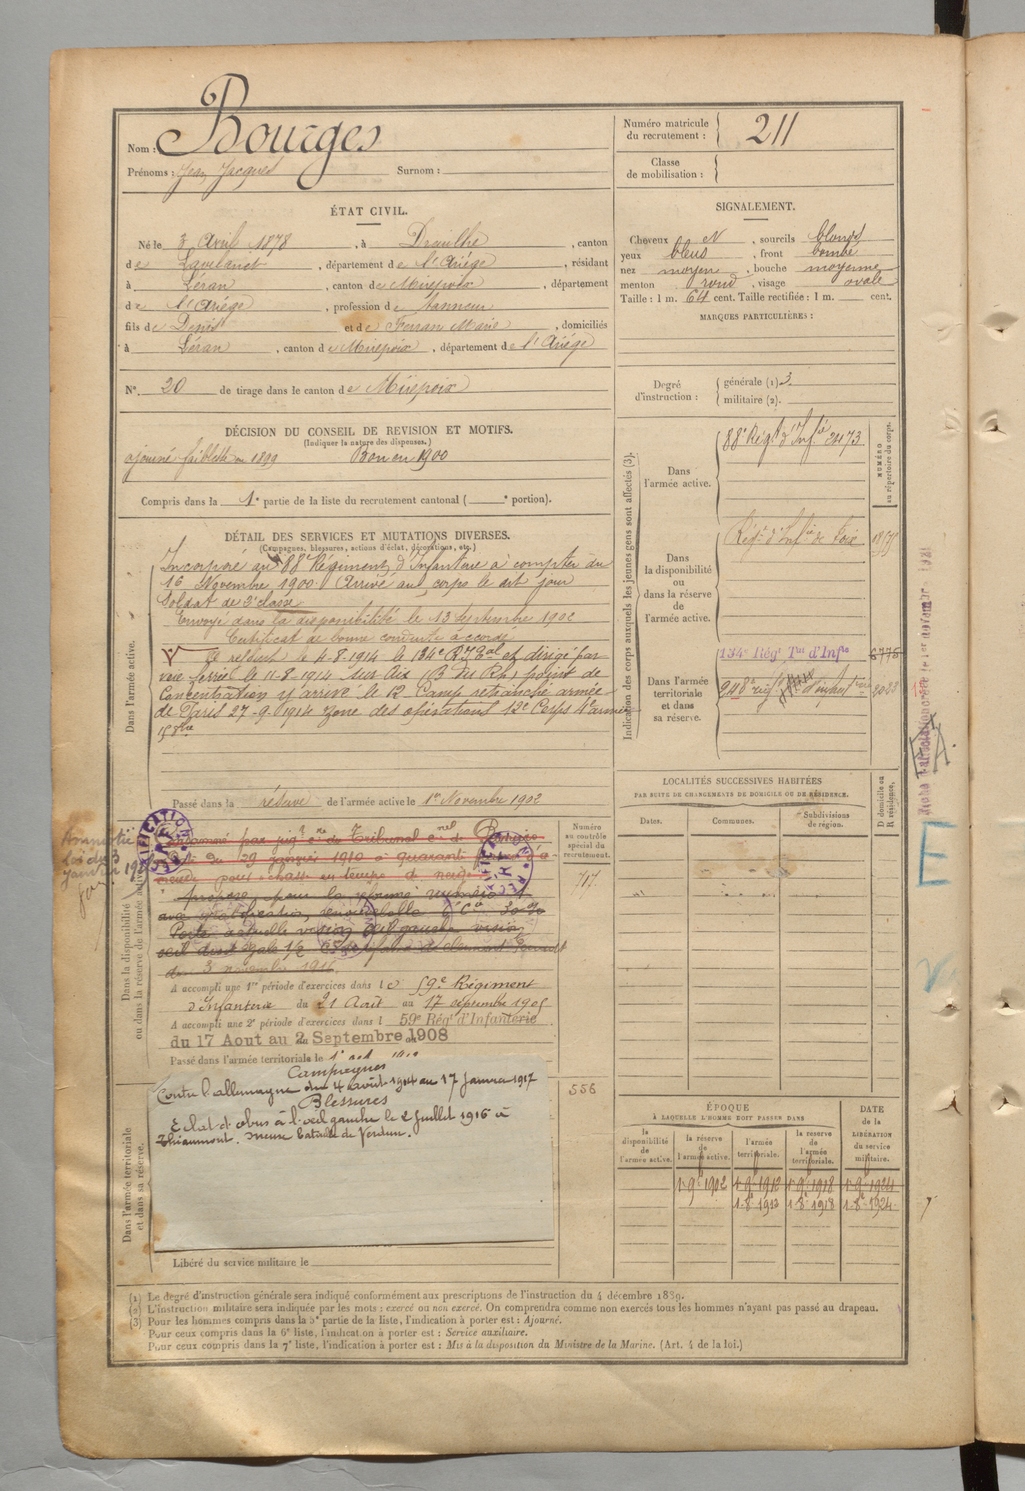 Nom : Bourges
Prénoms : Jean Jacques Surnom :
Numéro matricule du recrutement : 211
Classe de mobilisation :
ÉTAT CIVIL.
Né le 3 Avril 1878, à Dreuilhe, canton
de Lavelanet, département de l'Ariège, résidant
à Léran, canton de Mirepoix, département
de l'Ariège, profession de tanneur
fils de Denis et de Ferran Marie, domiciliés
à Léran, canton de Mirepoix, département de l'Ariège
N° 20 de tirage dans le canton de Mirepoix
SIGNALEMENT.
Cheveux N, sourcils blonds
yeux bleus, front bombé
nez moyen, bouche moyenne
menton rond, visage ovale
Taille : 1 m. 64 cent. Taille rectifiée : 1 m. cent.
MARQUES PARTICULIÈRES :
Degré d'instruction : générale (1) 3.
militaire (2).
DÉCISION DU CONSEIL DE REVISION ET MOTIFS.
(Indiquer la nature des dispenses.)
ajourné faiblesse en 1899 Bon en 1900
Compris dans la 1e partie de la liste du recrutement cantonal ( e portion).
DÉTAIL DES SERVICES ET MUTATIONS DIVERSES.
(Campagnes, blessures, actions d'éclat, décorations, etc.)
Dans l'armée active.
Incorporé au 88e Régiment d'Infanterie à compter du
16 Novembre 1900. Arrivé au corps le dit jour
Soldat de 2e classe
Envoyé dans la disponibilité le 13 septembre 1902
Certificat de bonne conduite accordé
le 4-8-1914 le 134e R.I.Tal et dirigé par
voie ferrée le 11-8-1914 sur Aix (B. du Rh.) point de
Concentration y arrivé le 12 Camp retranché armée
de Paris 27-9-1914 zone des opérations 12e Corps 4e armée
Passé dans la réserve de l'armée active le 1er Novembre 1902
Dans la disponibilité ou dans la réserve de l'armée active
Amnistié
Loi du 3
janvier 19
Condamné par jugt du Tribunal de
du 29 janvier 1910 à quarante
pour chasse en temps de neige
proposé pour la réforme numéro 1
avec gratification renouvelable 30 %
Perte actuelle vision oeil gauche vision
oeil droit égale 1/2 Clermont Ferrand
du 3 novembre 1916
A accompli une 1re période d'exercices dans le 59e Régiment
d'Infanterie du 21 Août au 17 septembre 1905
A accompli une 2e période d'exercices dans l 59e Régt d'Infanterie
du 17 Aout au 2 Septembre 1908
Passé dans l'armée territoriale le 1er oct 1912
Numéro au contrôle spécial du recrutement.
717.
556
Dans l'armée territoriale et dans sa réserve.
Campagnes
Contre l'allemagne du 4 août 1914 au 17 janvier 1917
Blessures
Eclat d'obus à l'oeil gauche le 2 juillet 1916 à
Thiaumont. Meuse bataille de Verdun.
Libéré du service militaire le
Indication des corps auxquels les jeunes gens sont affectés (3).
NUMÉRO au répertoire du corps.
Dans l'armée active.
88e Régt d'Infie 2473
Dans la disponibilité ou dans la réserve de l'armée active.
Régt d'Infie de Foix
Dans l'armée territoriale et dans sa réserve.
134e Régt Tal d'Infie 6775
248e
LOCALITÉS SUCCESSIVES HABITÉES
PAR SUITE DE CHANGEMENTS DE DOMICILE OU DE RÉSIDENCE.
Dates. Communes. Subdivisions de région. D domicile ou R résidence.
ÉPOQUE
À LAQUELLE L'HOMME DOIT PASSER DANS
la disponibilité de l'armée active. la réserve de l'armée active. l'armée territoriale. la réserve de l'armée territoriale.
DATE de la LIBÉRATION du service militaire.
1-9e 1902 1-9e 1912 1-9e 1918 1-9e 1924
1-8e 1913 1-8e 1918 1-8e 1924
(1) Le degré d'instruction générale sera indiqué conformément aux prescriptions de l'instruction du 4 décembre 1889.
(2) L'instruction militaire sera indiquée par les mots : exercé ou non exercé. On comprendra comme non exercés tous les hommes n'ayant pas passé au drapeau.
(3) Pour les hommes compris dans la 5e partie de la liste, l'indication à porter est : Ajourné.
Pour ceux compris dans la 6e liste, l'indication à porter est : Service auxiliaire.
Pour ceux compris dans la 7e liste, l'indication à porter est : Mis à la disposition du Ministre de la Marine. (Art. 4 de la loi.)
E